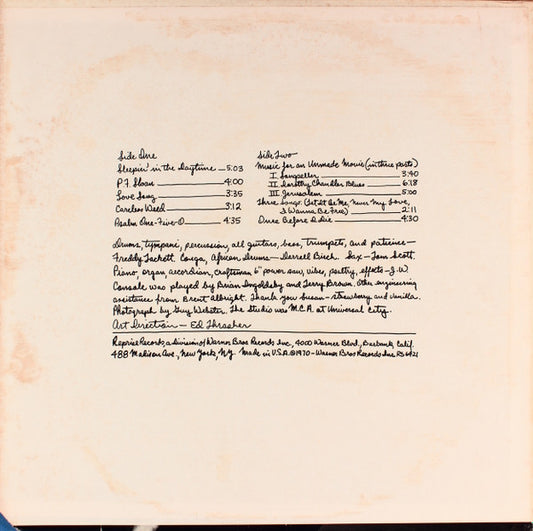 Side One
Sleepin' in the Daytime — 5:03
P.F. Sloan 4:00
Love Song 3:35
Careless Weed 3:12
Psalm One-Five-O 4:35
Side Two
Music for an Unmade Movie (in three parts)
I. Songseller 3:40
II Dorothy Chandler Blues 6:18
III Jerusalem 5:00
Three Songs: (Let It Be Me, Never My Love,
I Wanna Be Free) 2:11
Once Before I Die 4:30
Drums, tympani, percussion, all guitars, bass, trumpets, and patience —
Freddy Tackett. Conga, African Drums — Darrell Birch. Sax — Tom Scott.
Piano, organ accordian, craftsman 6" power saw, vibes, poultry, effects — J.W.
Console was played by Brian Ingoldsby and Terry Brown. Other engineering
assistance from Brent Albright. Thank you Susan — strawberry and vanilla.
Photograph by Guy Webster. The Studio was M.C.A. at Universal City.
Art Direction — Ed Thrasher
Reprise Records, a division of Warner Bros Records Inc., 4000 Warner Blvd., Burbank, Calif.
488 Madison Ave., New York, N.Y. Made in U.S.A. ©1970 — Warner Bros Records Inc RS 6421